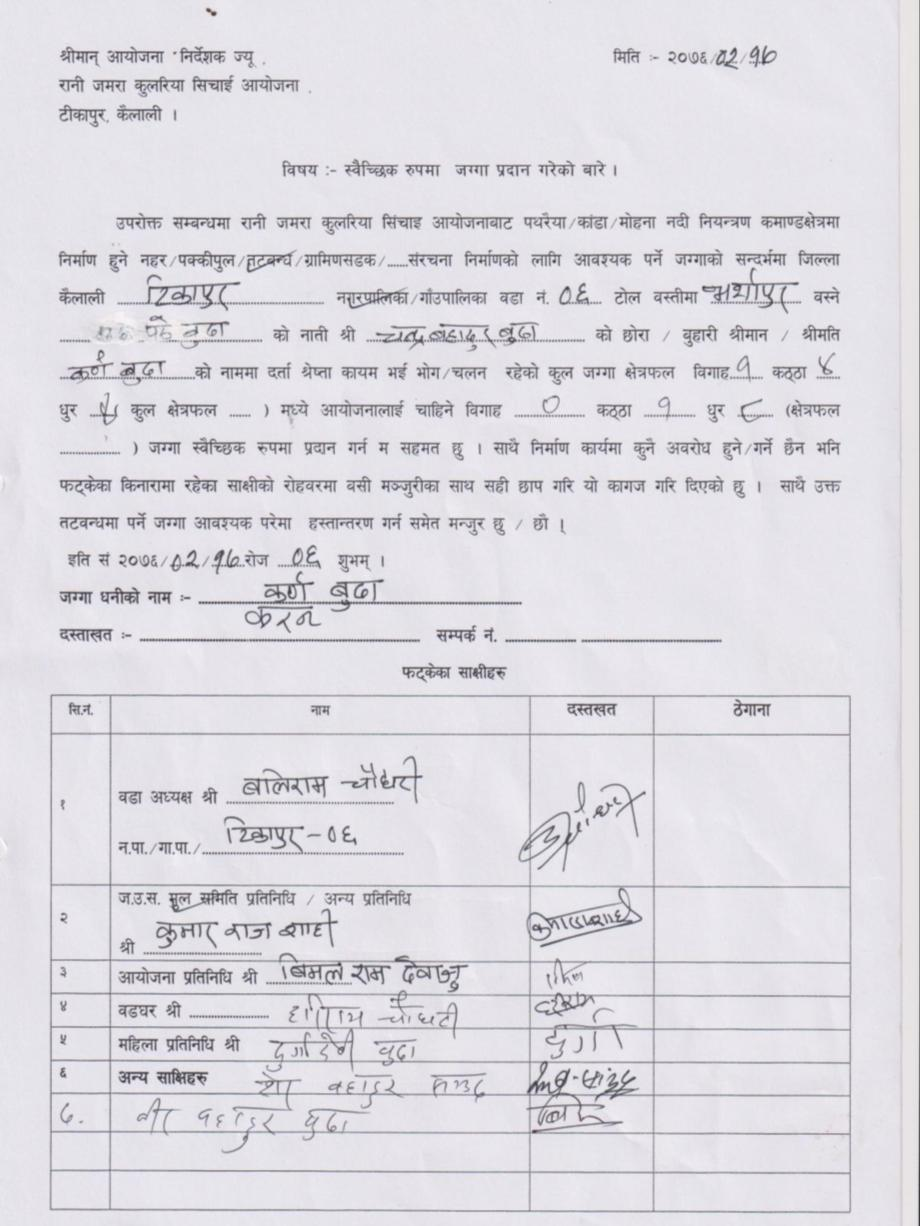 श्रीमान् आयोजना निर्देशक ज्यू,
मिति :- २०७६/०२/१७
रानी जमरा कुलरिया सिचाई आयोजना,
टीकापुर, कैलाली ।
विषय :- स्वैच्छिक रुपमा जग्गा प्रदान गरेको बारे ।
उपरोक्त सम्बन्धमा रानी जमरा कुलरिया सिंचाइ आयोजनाबाट पथरैया/कांडा/मोहना नदी नियन्त्रण कमाण्डक्षेत्रमा
निर्माण हुने नहर/पक्कीपुल/तटबन्ध/ग्रामिणसडक/......संरचना निर्माणको लागि आवश्यक पर्ने जग्गाको सन्दर्भमा जिल्ला
कैलाली टिकापुर नगरपालिका/गाँउपालिका वडा नं. ०६ टोल वस्तीमा वस्ने
बुढा को नाती श्री चन्द्र बहादुर बुढा को छोरा / बुहारी श्रीमान / श्रीमति
कर्ण बुढा को नाममा दर्ता श्रेष्ता कायम भई भोग/चलन रहेको कुल जग्गा क्षेत्रफल विगाह १ कठ्ठा ४
धुर कुल क्षेत्रफल ...... ) मध्ये आयोजनालाई चाहिने विगाह ० कठ्ठा १ धुर ८ (क्षेत्रफल
.................. ) जग्गा स्वैच्छिक रुपमा प्रदान गर्न म सहमत छु । साथै निर्माण कार्यमा कुनै अवरोध हुने/गर्ने छैन भनि
फट्केका किनारामा रहेका साक्षीको रोहवरमा वसी मञ्जुरीका साथ सही छाप गरि यो कागज गरि दिएको छु । साथै उक्त
तटवन्धमा पर्ने जग्गा आवश्यक परेमा हस्तान्तरण गर्न समेत मन्जुर छु / छौ ।
इति सं २०७६/०२/१७ रोज ०६ शुभम् ।
जग्गा धनीको नाम :- कर्ण बुढा
करन
दस्ताखत :- सम्पर्क नं.
फट्केका साक्षीहरु
सि.नं. नाम दस्तखत ठेगाना
१ वडा अध्यक्ष श्री बालिराम चौधरी
न.पा./गा.पा./ टिकापुर-०६
२ ज.उ.स. मुल समिति प्रतिनिधि / अन्य प्रतिनिधि
श्री कुमार राज शाही
३ आयोजना प्रतिनिधि श्री बिमल राम देवाजु
४ वडघर श्री चौधरी
५ महिला प्रतिनिधि श्री दुर्गादेवी बुढा दुर्गा
६ अन्य साक्षिहरु बहादुर
७. वीर बहादुर बुढा